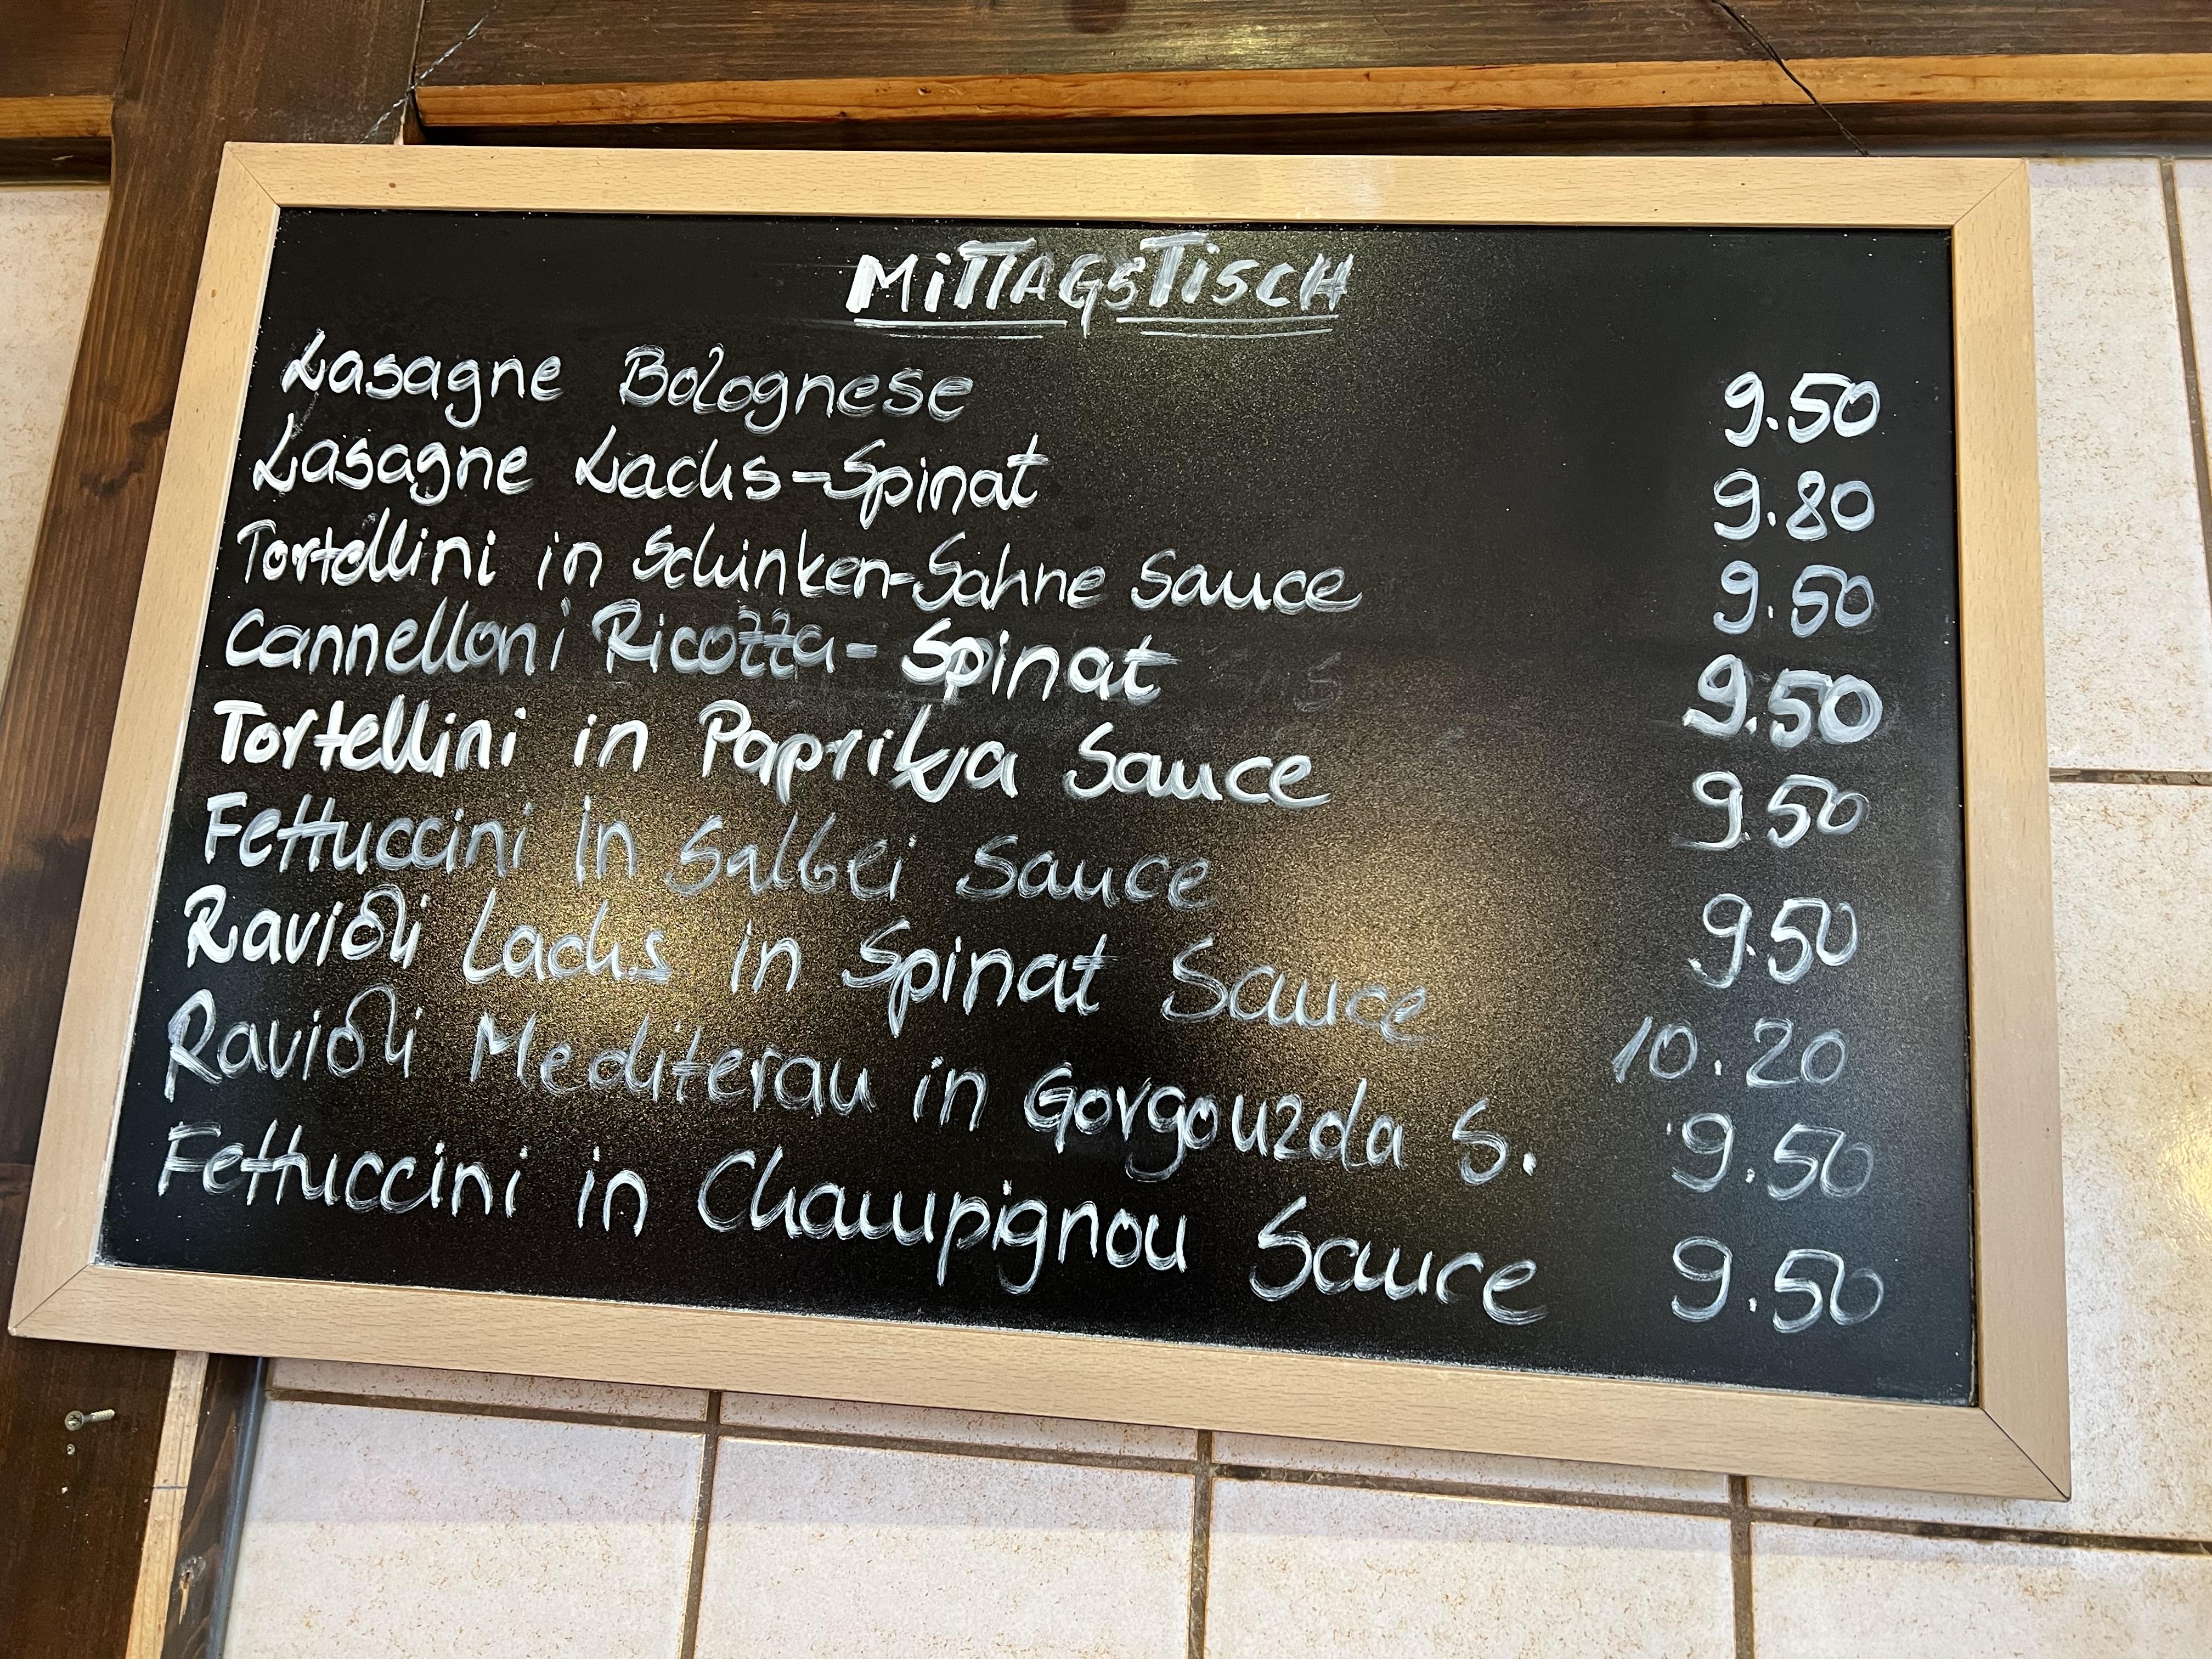 MiTTAGSTiSCH
Lasagne Bolognese 9.50
Lasagne Lachs-Spinat 9.80
Tortellini in Schinken-Sahne Sauce 9.50
Cannelloni Ricotta-Spinat 9.50
Tortellini in Paprika Sauce 9.50
Fettuccini in Salbei Sauce 9.50
Ravioli Lachs in Spinat Sauce 10.20
Ravioli Mediteran in Gorgonzola S. 9.50
Fettuccini in Champignon Sauce 9.50